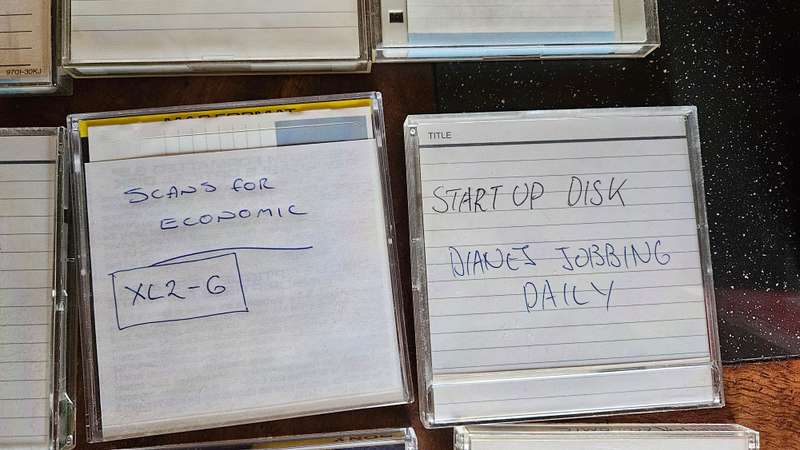 970I-30KJ
SCANS FOR
ECONOMIC
XL2-G
TITLE
START UP DISK
DIANES JOBBING
DAILY